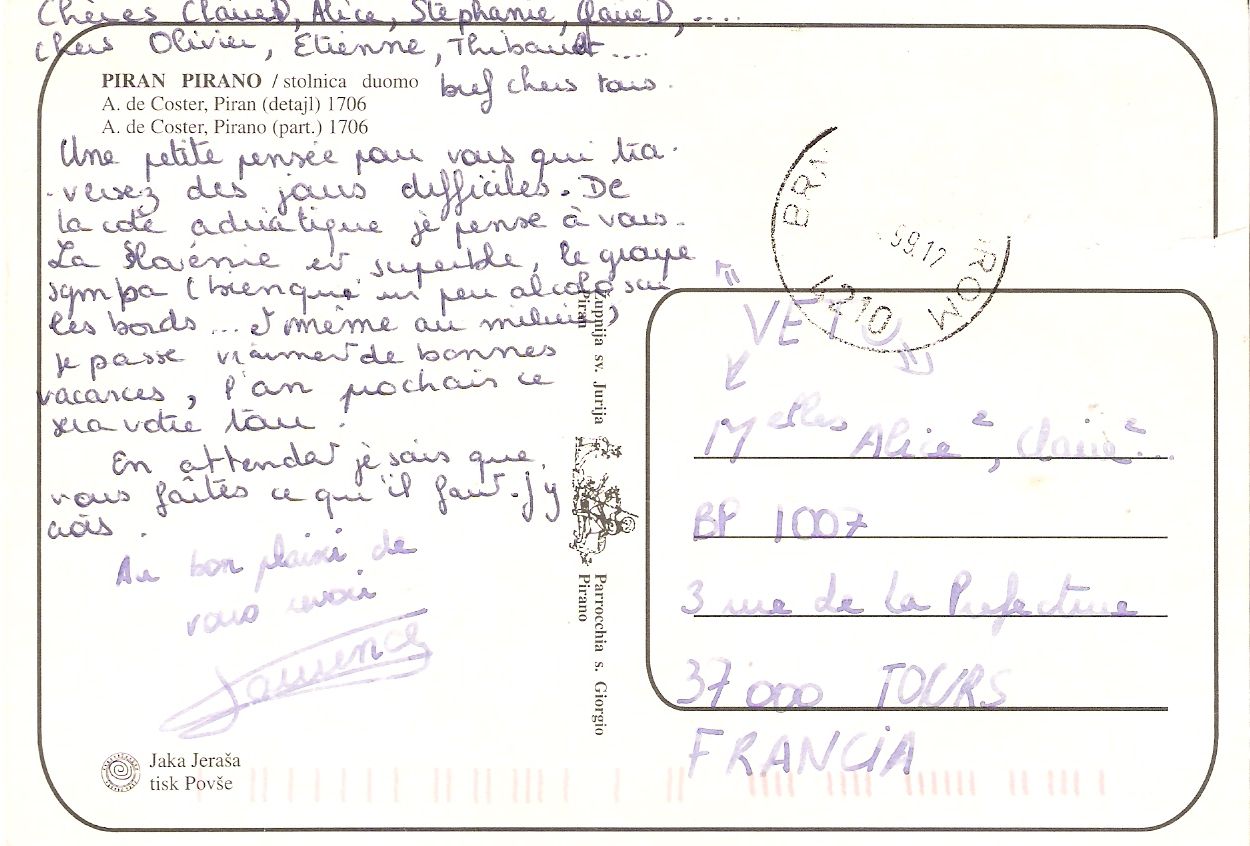 Chères Claire D, Alice, Stéphanie, Claire D, ....
chers Olivier, Etienne, Thibault ...
bref chers tous.
PIRAN PIRANO / stolnica duomo
A. de Coster, Piran (detajl) 1706
A. de Coster, Pirano (part.) 1706
Une petite pensée pour vous qui tra-
-versez des jours difficiles. De
la côte adriatique je pense à vous.
La Slovénie est superbe, le groupe
sympa (bien qu'un peu alcolo sur
les bords ... et même au milieu)
je passe vraiment de bonnes
vacances, l'an prochain ce
sera votre tour.
En attendant je sais que
vous faites ce qu'il faut. J'y
crois.
Au bon plaisir de
vous revoir
Laurence
Jaka Jeraša
tisk Povše
Župnija sv. Jurija
Piran
Parrocchia s. Giorgio
Pirano
99.17
ROM
4210
VETO
Melles Alice, Claire...
BP 1007
3 rue de la Préfecture
37000 TOURS
FRANCIA